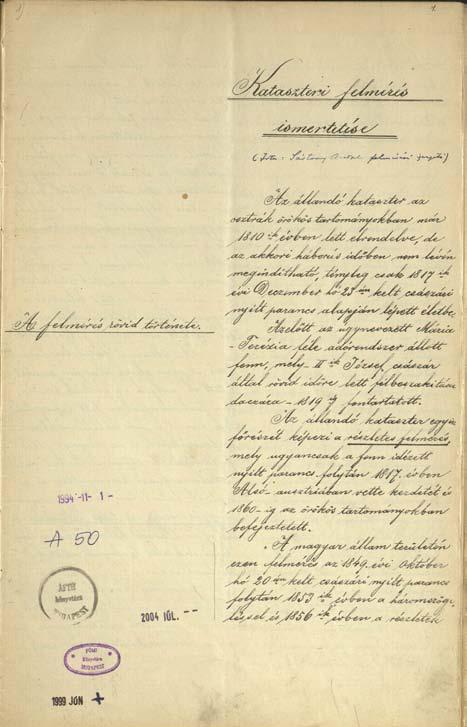 1
Kataszteri felmérés
ismertetése
(Irta: felmérési
Az állandó kataszter az
osztrák örökös tartományokban már
1810 ik évben lett elrendelve, de
az akkori háborús időben nem lévén
megindítható, tényleg csak 1817 ik
évi Deczember hó 23 án kelt császári
nyílt parancs alapján lépett életbe
Azelőtt az úgynevezett Mária
- Terézia féle adórendszer állott
fenn, mely - II ik József császár
által rövid időre lett félbeszakítása
daczára - 1819 ig fentartatott.
Az állandó kataszter egyik
főrészét képezi a részletes felmérés,
mely ugyancsak a fenn idézett
nyílt parancs folytán 1817. évben
Alsó-ausztriában vette kezdetét és
1860-ig az örökös tartományokban
befejeztetett.
A magyar állam területén
ezen felmérés az 1849. évi Október
hó 20 án kelt császári nyílt parancs
folytán 1853 ik évben a háromszög-
eléssel és 1856 ik évben a részletek
A felmérés rövid története.
1994 -11- 1 -
A 50
könyvtára
BUDAPEST
2004 JÚL. - -
FÖMI
Könyvtára
BUDAPEST
1999 JÚN